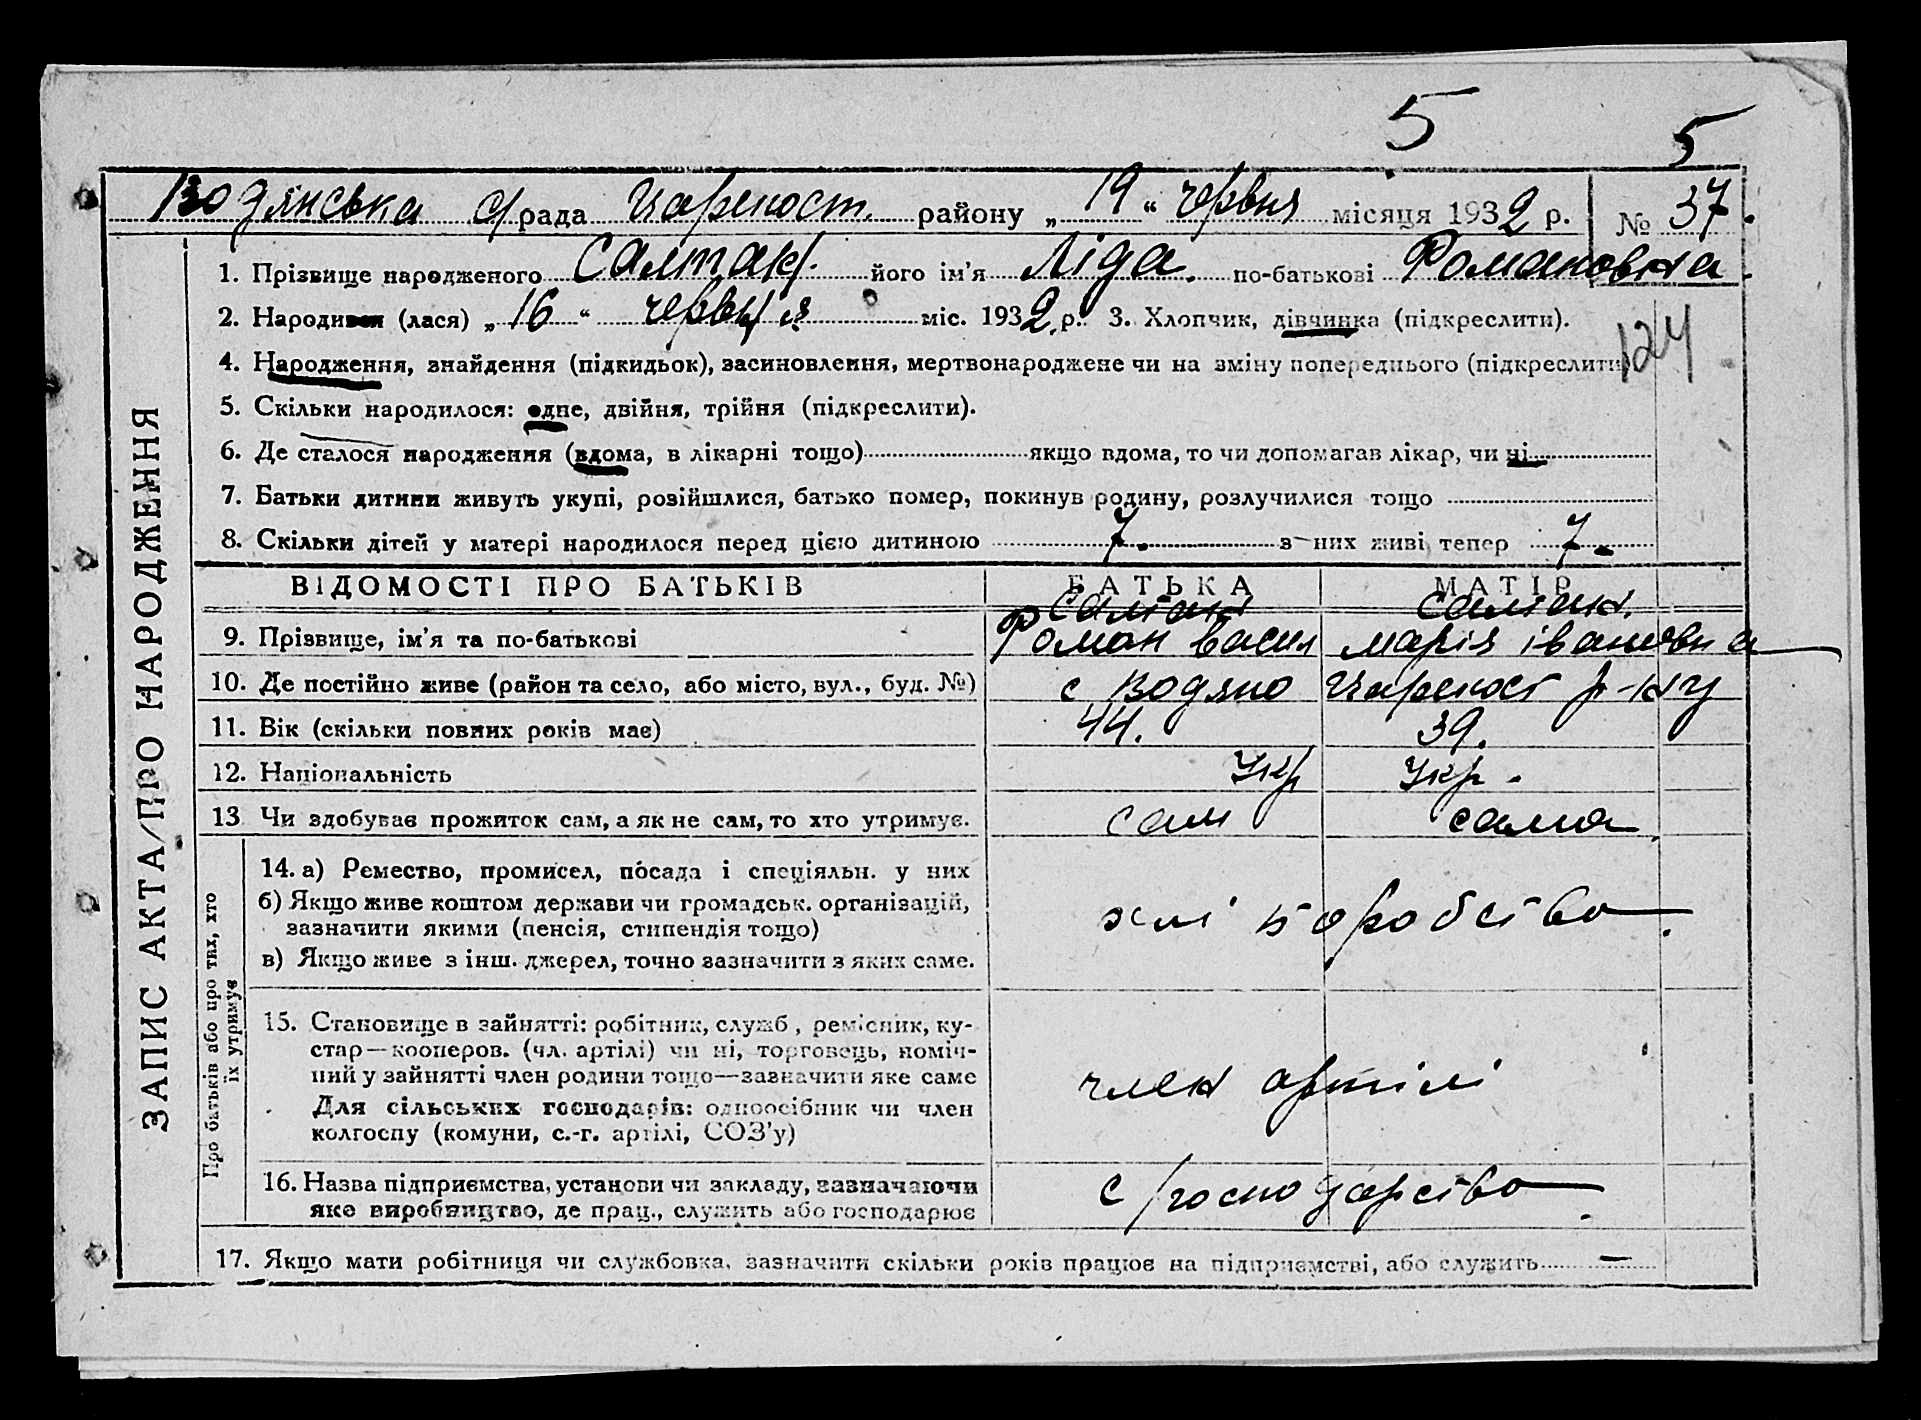 5 5
Водянська с/рада Цареконст. району „19“ червня місяця 1932 р. № 37.
1. Прізвище народженого Салтак його ім’я Ліда. по-батькові Романовна.
2. Народився (лася) „16“ червня міс. 1932 р. 3. Хлопчик, дівчинка (підкреслити).
124
4. Народження, знайдення (підкидьок), засиновлення, мертвонароджене чи на зміну попереднього (підкреслити)
5. Скільки народилося: одне, двійня, трійня (підкреслити).
6. Де сталося народження (вдома, в лікарні тощо) якщо вдома, то чи допомагав лікар, чи ні
7. Батьки дитини живуть укупі, розійшлися, батько помер, покинув родину, розлучилися тощо
8. Скільки дітей у матері народилося перед цією дитиною 7. з них живі тепер 7.
ЗАПИС АКТА ПРО НАРОДЖЕННЯ
ВІДОМОСТІ ПРО БАТЬКІВ БАТЬКА МАТІР
Салтак Салтак.
9. Прізвище, ім’я та по-батькові Роман Васил Марія Івановна
10. Де постійно живе (район та село, або місто, вул., буд. №) с Водяно Цареконст р-ну
11. Вік (скільки повних років має) 44. 39.
12. Національність Укр Укр.
13 Чи здобував прожиток сам, а як не сам, то хто утримує. сам сама.
Про батьків або про тих, хто
їх утримує
14. а) Ремество, промисел, посада і спеціяльн. у них
б) Якщо живе коштом держави чи громадськ. організацій,
зазначити якими (пенсія, стипендія тощо)
в) Якщо живе з інш. джерел, точно зазначити з яких саме.
хліборобство.
15. Становище в зайнятті: робітник, служб., ремісник, ку-
стар—кооперов. (чл. артілі) чи ні, торговець, поміч-
ний у зайнятті член родини тощо—зазначити яке саме
Для сільських господарів: одноосібник чи член
колгоспу (комуни, с.-г. артілі, СОЗ’у)
член артілі
16. Назва підприємства, установи чи закладу, зазначаючи
яке виробництво, де прац., служить або господарює
с/господарство.
17. Якщо мати робітниця чи службовка, зазначити скільки років працює на підприємстві, або служить —